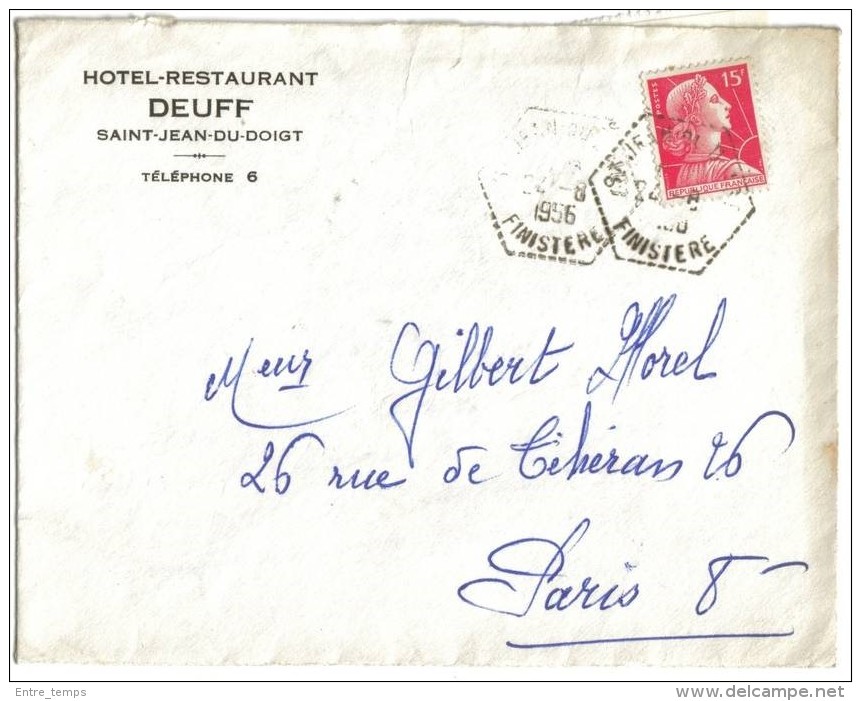 HOTEL-RESTAURANT
DEUFF
SAINT-JEAN-DU-DOIGT
TÉLÉPHONE 6
POSTES
15F
REPUBLIQUE FRANÇAISE
24-8
1956
FINISTERE
24 8
FINISTERE
Meur Gilbert Morel
26 rue de Téhéran 26
Paris 8
Entre_temps
www.delcampe.net